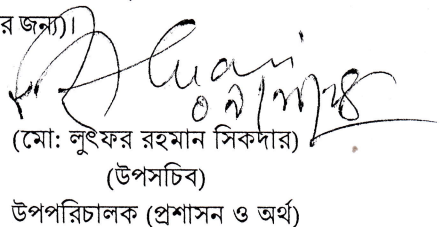 র জন্য)।
(মো: লুৎফর রহমান সিকদার)
(উপসচিব)
উপপরিচালক (প্রশাসন ও অর্থ)